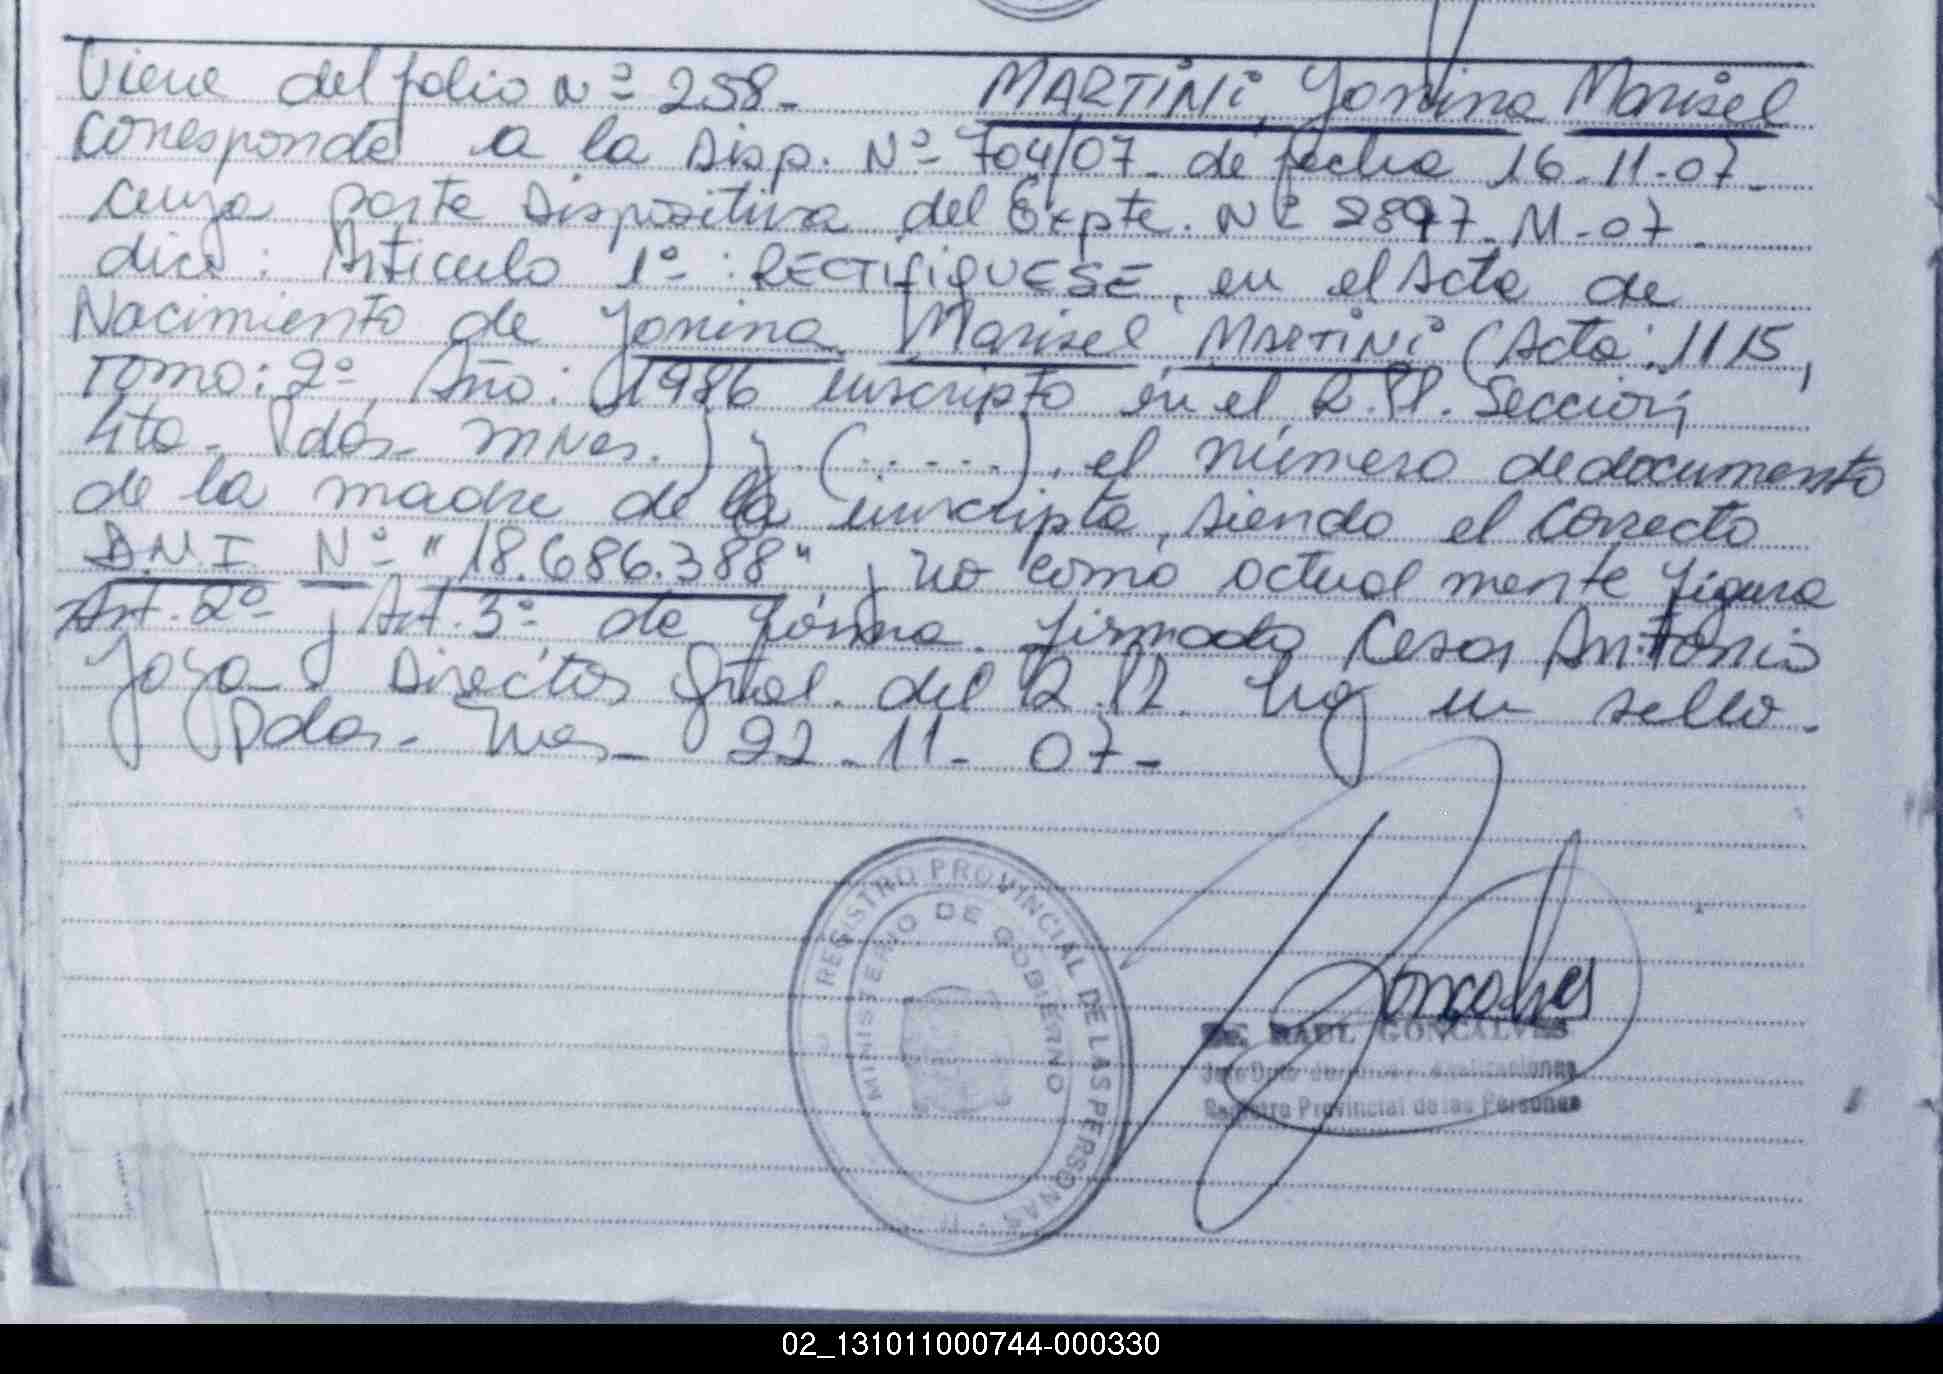 Viene del folio Nº 258- MARTINi, Yonina Marisel
Corresponde a la Disp. Nº 704/07- de fecha 16-11-07-
cuya parte Dispositiva del Expte. Nº 2897-M-07-
dice: Articulo 1º: RECTIFIQUESE, en el Acta de
Nacimiento de Yonina Marisel MARTiNi (Acta: 1115,
Tomo: 2º, Año: 1986 inscripto en el R.P. Sección
4ta- Pdas- Mnes.) y (.....), el número de documento
de la madre de la inscripta, siendo el Correcto
D.N.I. Nº "18.686.388", y no como actual mente figura
Art. 2º y Art. 3º de forma. firmado Cesar Antonio
Joya- Director Gral. del R.P. hay un sello-
Pdas- Mnes- 22-11-07-
REGISTRO PROVINCIAL DE LAS PERSONAS
MINISTERIO DE GOBIERNO
Goncalves
RAUL GONCALVES
Jefe Dpto
Registro Provincial de las Personas
02_131011000744-000330